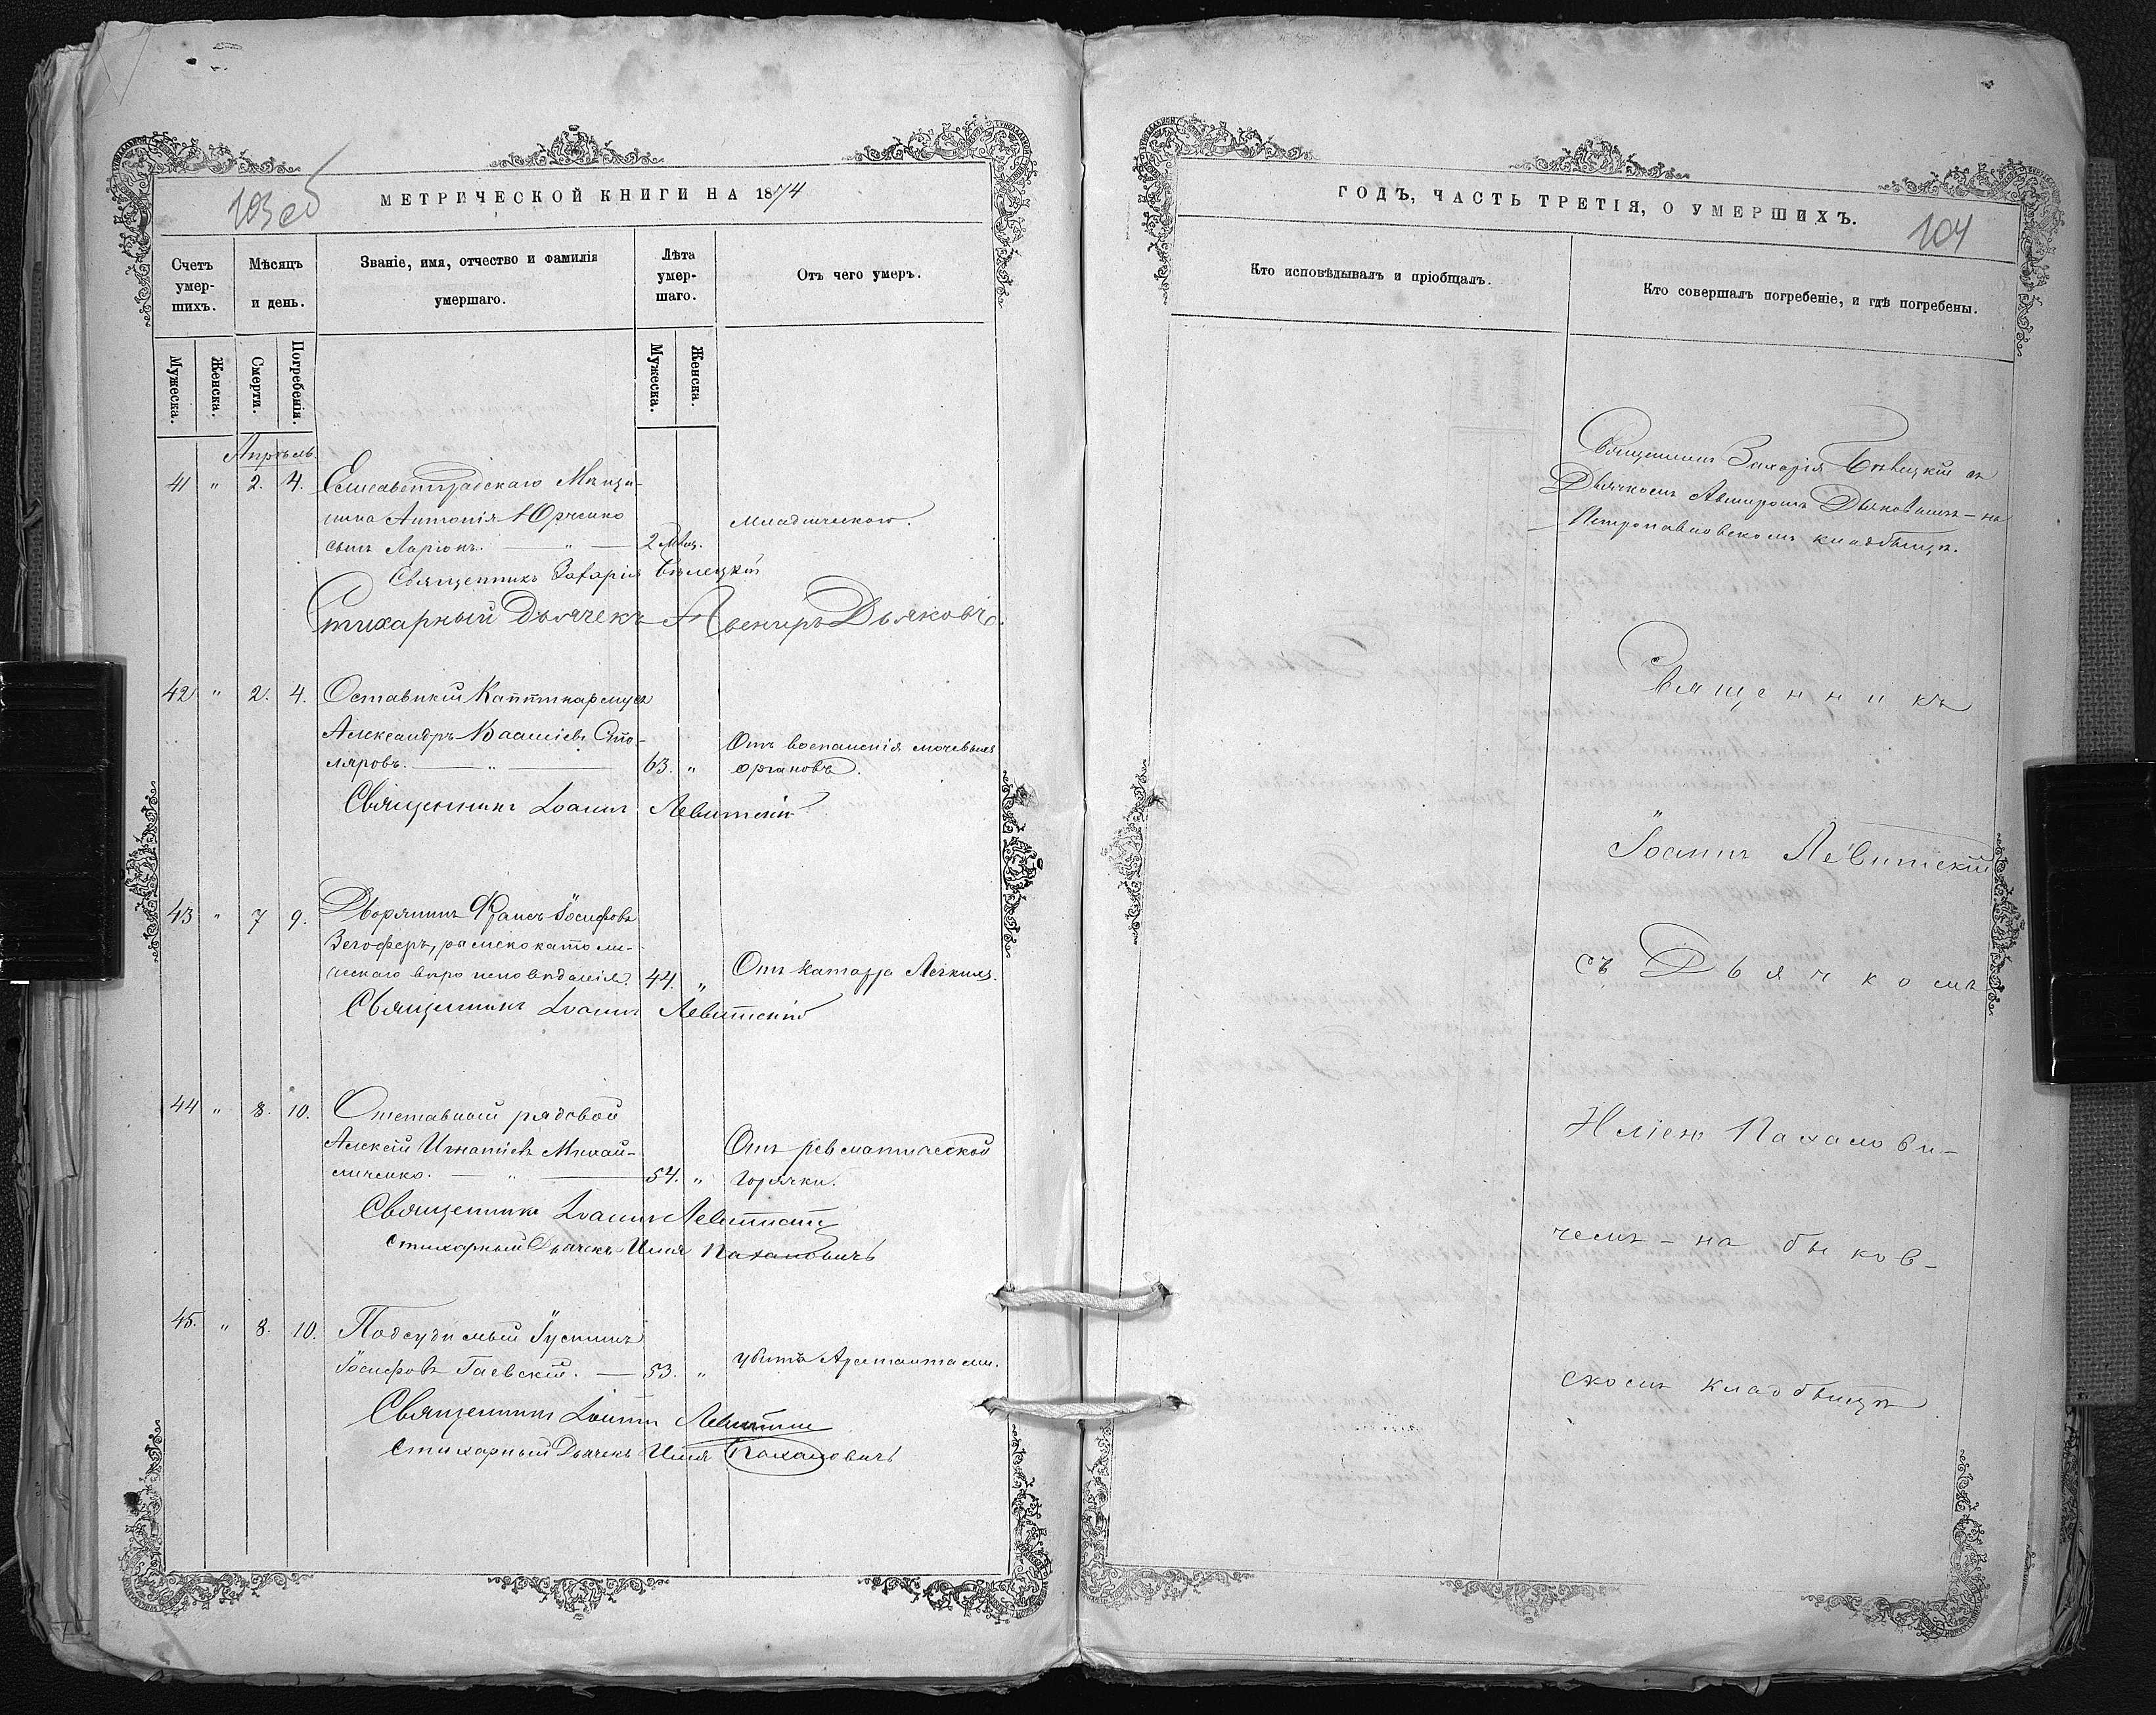 103 об
МЕТРИЧЕСКОЙ КНИГИ НА 1874
Счетъ умер- шихъ.
Мѣсяцъ и день.
Званіе, имя, отчество и фамилія умершаго.
Лѣта умер- шаго.
Отъ чего умеръ.
Мужеска.
Женска.
Смерти.
Погребенія.
Мужеска.
Женска.
Апрѣль
41 " 2. 4. Елисаветградскаго Мѣща-
нина Антонія Юрченко Младенческою.
сынъ Ларіонъ. — " — 2 Мѣс.
Священникъ Захарія Бѣлецкій
Стихарный Дьячекъ Авениръ Дьяковъ.
42 " 2. 4. Александръ
ляровъ. — " — 63. " Отъ воспаленія мочевыхъ
органовъ.
Священникъ Іоаннъ Левитскій
43 " 7 9. Дворянинъ Францъ Іосифовъ
Зегоферъ, римскокатоли-
ческаго вѣроисповѣданія. 44. " Отъ катарра Легкихъ.
Священникъ Іоаннъ Левитскій
44 " 8. 10. Отставной рядовой
Алексѣй Игнатіевъ Михай- Отъ ревматической
личенко. — " — 54. " горячки.
Священникъ Іоаннъ Левитскій
Стихарный Дьячекъ Илія Пахаловичъ
45. " 8. 10. Подсудимый Іустинъ
Іосифовъ Гаевскій. — 53. " убитъ Арестантами.
Священникъ Іоаннъ Левитскій
Стихарный Дьячекъ Илія Пахаловичъ
ГОДЪ, ЧАСТЬ ТРЕТІЯ, О УМЕРШИХЪ.
104
Кто исповѣдывалъ и пріобщалъ.
Кто совершалъ погребеніе, и гдѣ погребены.
Священникъ Захарія Бѣлецкій съ
Дьячкомъ Авениромъ Дьяковымъ – на
Петропавловскомъ кладбищѣ.
Священникъ
Іоаннъ Левитскій
съ Дьячкомъ
Иліею Пахалови-
чемъ – на Быков-
скомъ кладбищѣ